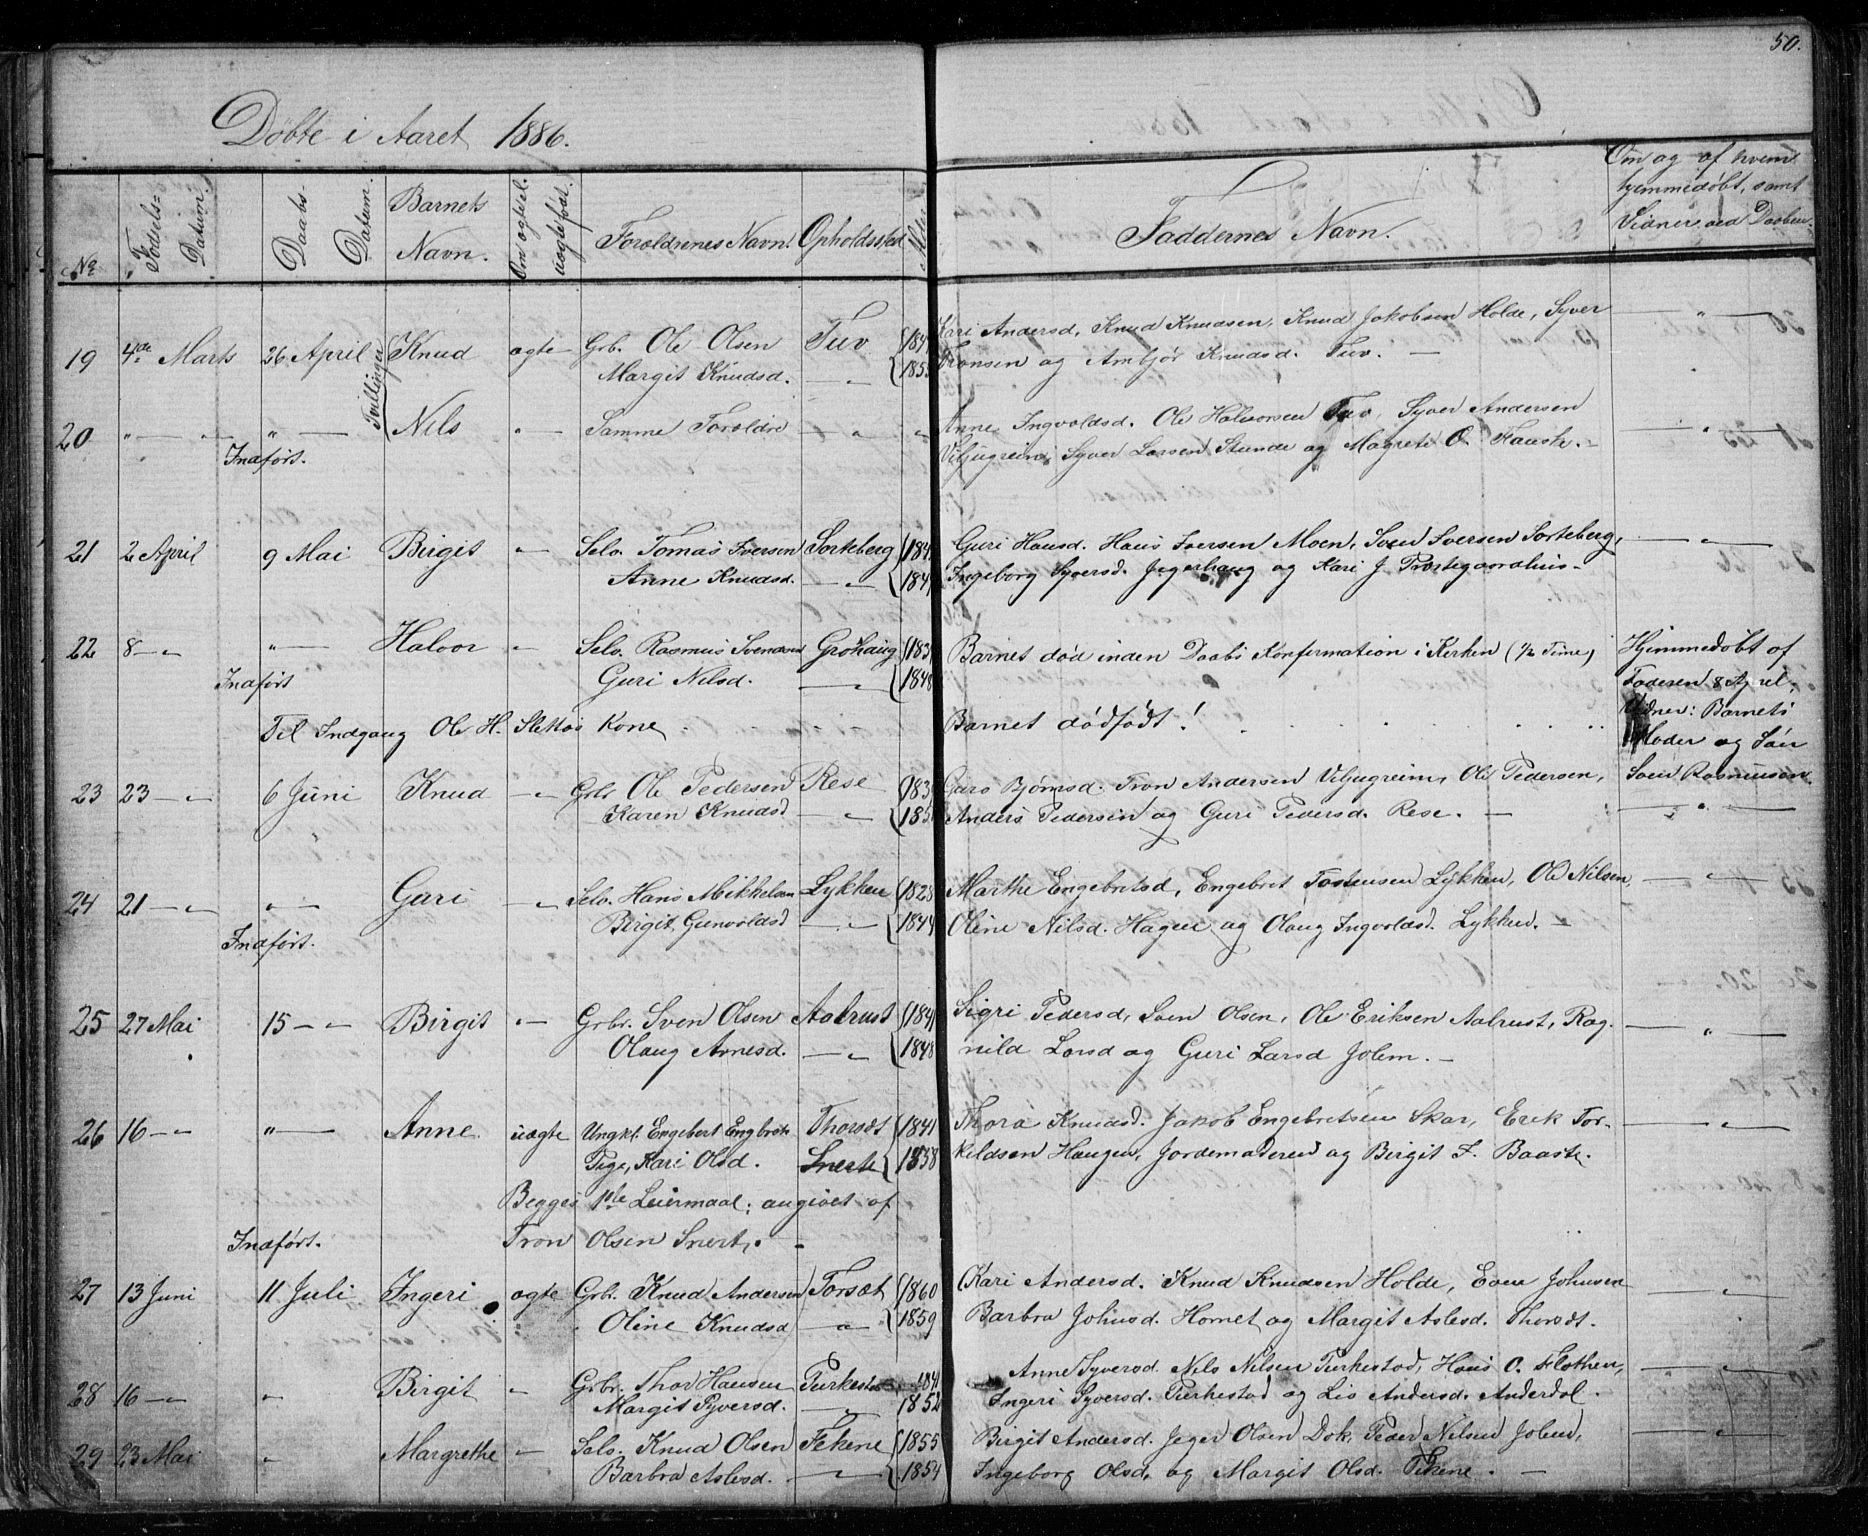 50.
Döbte i Aaret 1886.
No
Fødsels-Datum.
Daabs-Datum.
Barnets Navn.
Om ægte el. uægtefødt.
Forældrenes Navn.
Opholdssted
Faddernes Navn.
Om og af hvem hjemmedøbt, samt Vidner ved Daaben.
19 4de Marts 26 April Tvillinger Knud ægte Grb. Ole Olsen Tuv Kari Andersd. Knud Knudsen, Knud Jakobsen Holde, Syver
Margit Knudsd. Tronsen og Ambjør Knudsd. Tuv.
20 Nils Samme Forældre Anne Ingvoldsd. Ole Halvorsen Tuv, Syver Andersen
Indført. Viljugrein, Syver Larsen Stunde og Magrete O. Fauske.
21 2 April 9 Mai Birgit Selv. Tomas Iversen Sorteberg Guri Hansd. Hans Iversen Moen, Sven Iversen Sorteberg,
Anne Knudsd. Ingeborg Syversd. Jegerhaug og Kari J. Prestegaardhus
22 8 Halvor Selv. Rasmus Svendsen Gröhaug Barnet död inden Daabs Konfermation i Kirken (½ Time) Hjemmedøbt af
Indført Guri Nilsd. 1848 Faderen 8 April.
Til Indgang Ole H. Slettos Kone Barnet dødfødt! Vidner: Barnets
Moder og Søn
23 23 6 Juni Knud Grb. Ole Pedersen Rese Guro Bjørnsd. Tron Andersen Viljugrein, Ole Pedersen, Sven Rasmusen
Karen Knudsd Anders Pedersen og Guri Pedersd. Rese.
24 21 Guri Selv. Hans Mikkelsen Lykken 1828 Marthe Engebretsd, Engebret Tostensen Lykken, Ole Nilsen,
Indført. Birgit Gunvoldsd 1844 Oline Nilsd. Hagen og Olaug Ingvoldsd. Lykken.
25 27 Mai 15 Birgit Grbr. Sven Olsen Aalrust 1841 Sigri Pedersd, Sven Olsen, Ole Eriksen Aalrust, Rag-
Olaug Arnesd. 1848 nild Larsd og Guri Larsd Jolem.
26 16 Anne uægte Ungkl. Engebert Engbrets. Thorsæt 1841 Thora Knudsd. Jakob Engebretsen Skar, Erik Tor-
Pige, Kari Olsd. Snerte 1858 kildsen Haugen, Jordemoderen og Birgit F. Baaste.
Begges 1ste Leiermaal; angivet af
Indført. Tron Olsen Snert.
27 13 Juni 11 Juli Ingeri ægte Grb. Knud Andersen Torsæt 1860 Kari Andersd. Knud Knudsen Holde, Even Johnsen
Oline Knudsd 1859 Barbra Johnsd. Homet og Margit Aslesd. Thorsæt.
28 16 Birgit Grbr. Thor Hansen Purkestad 1841 Anne Syversd. Nils Nilsen Purkestad, Hans O. Flathen,
Margit Syversd. 1852 Ingeri Syversd. Purkestad og Liv Andersd. Anderdal.
29 23 Mai Margrethe Selv. Knud Olsen Tekene 1855 Birgit Andersd. Jeger Olsen Dok, Peder Nilsen Jolem,
Barbra Aslesd. 1854 Ingeborg Olsd. og Margit Olsd. Tekene.